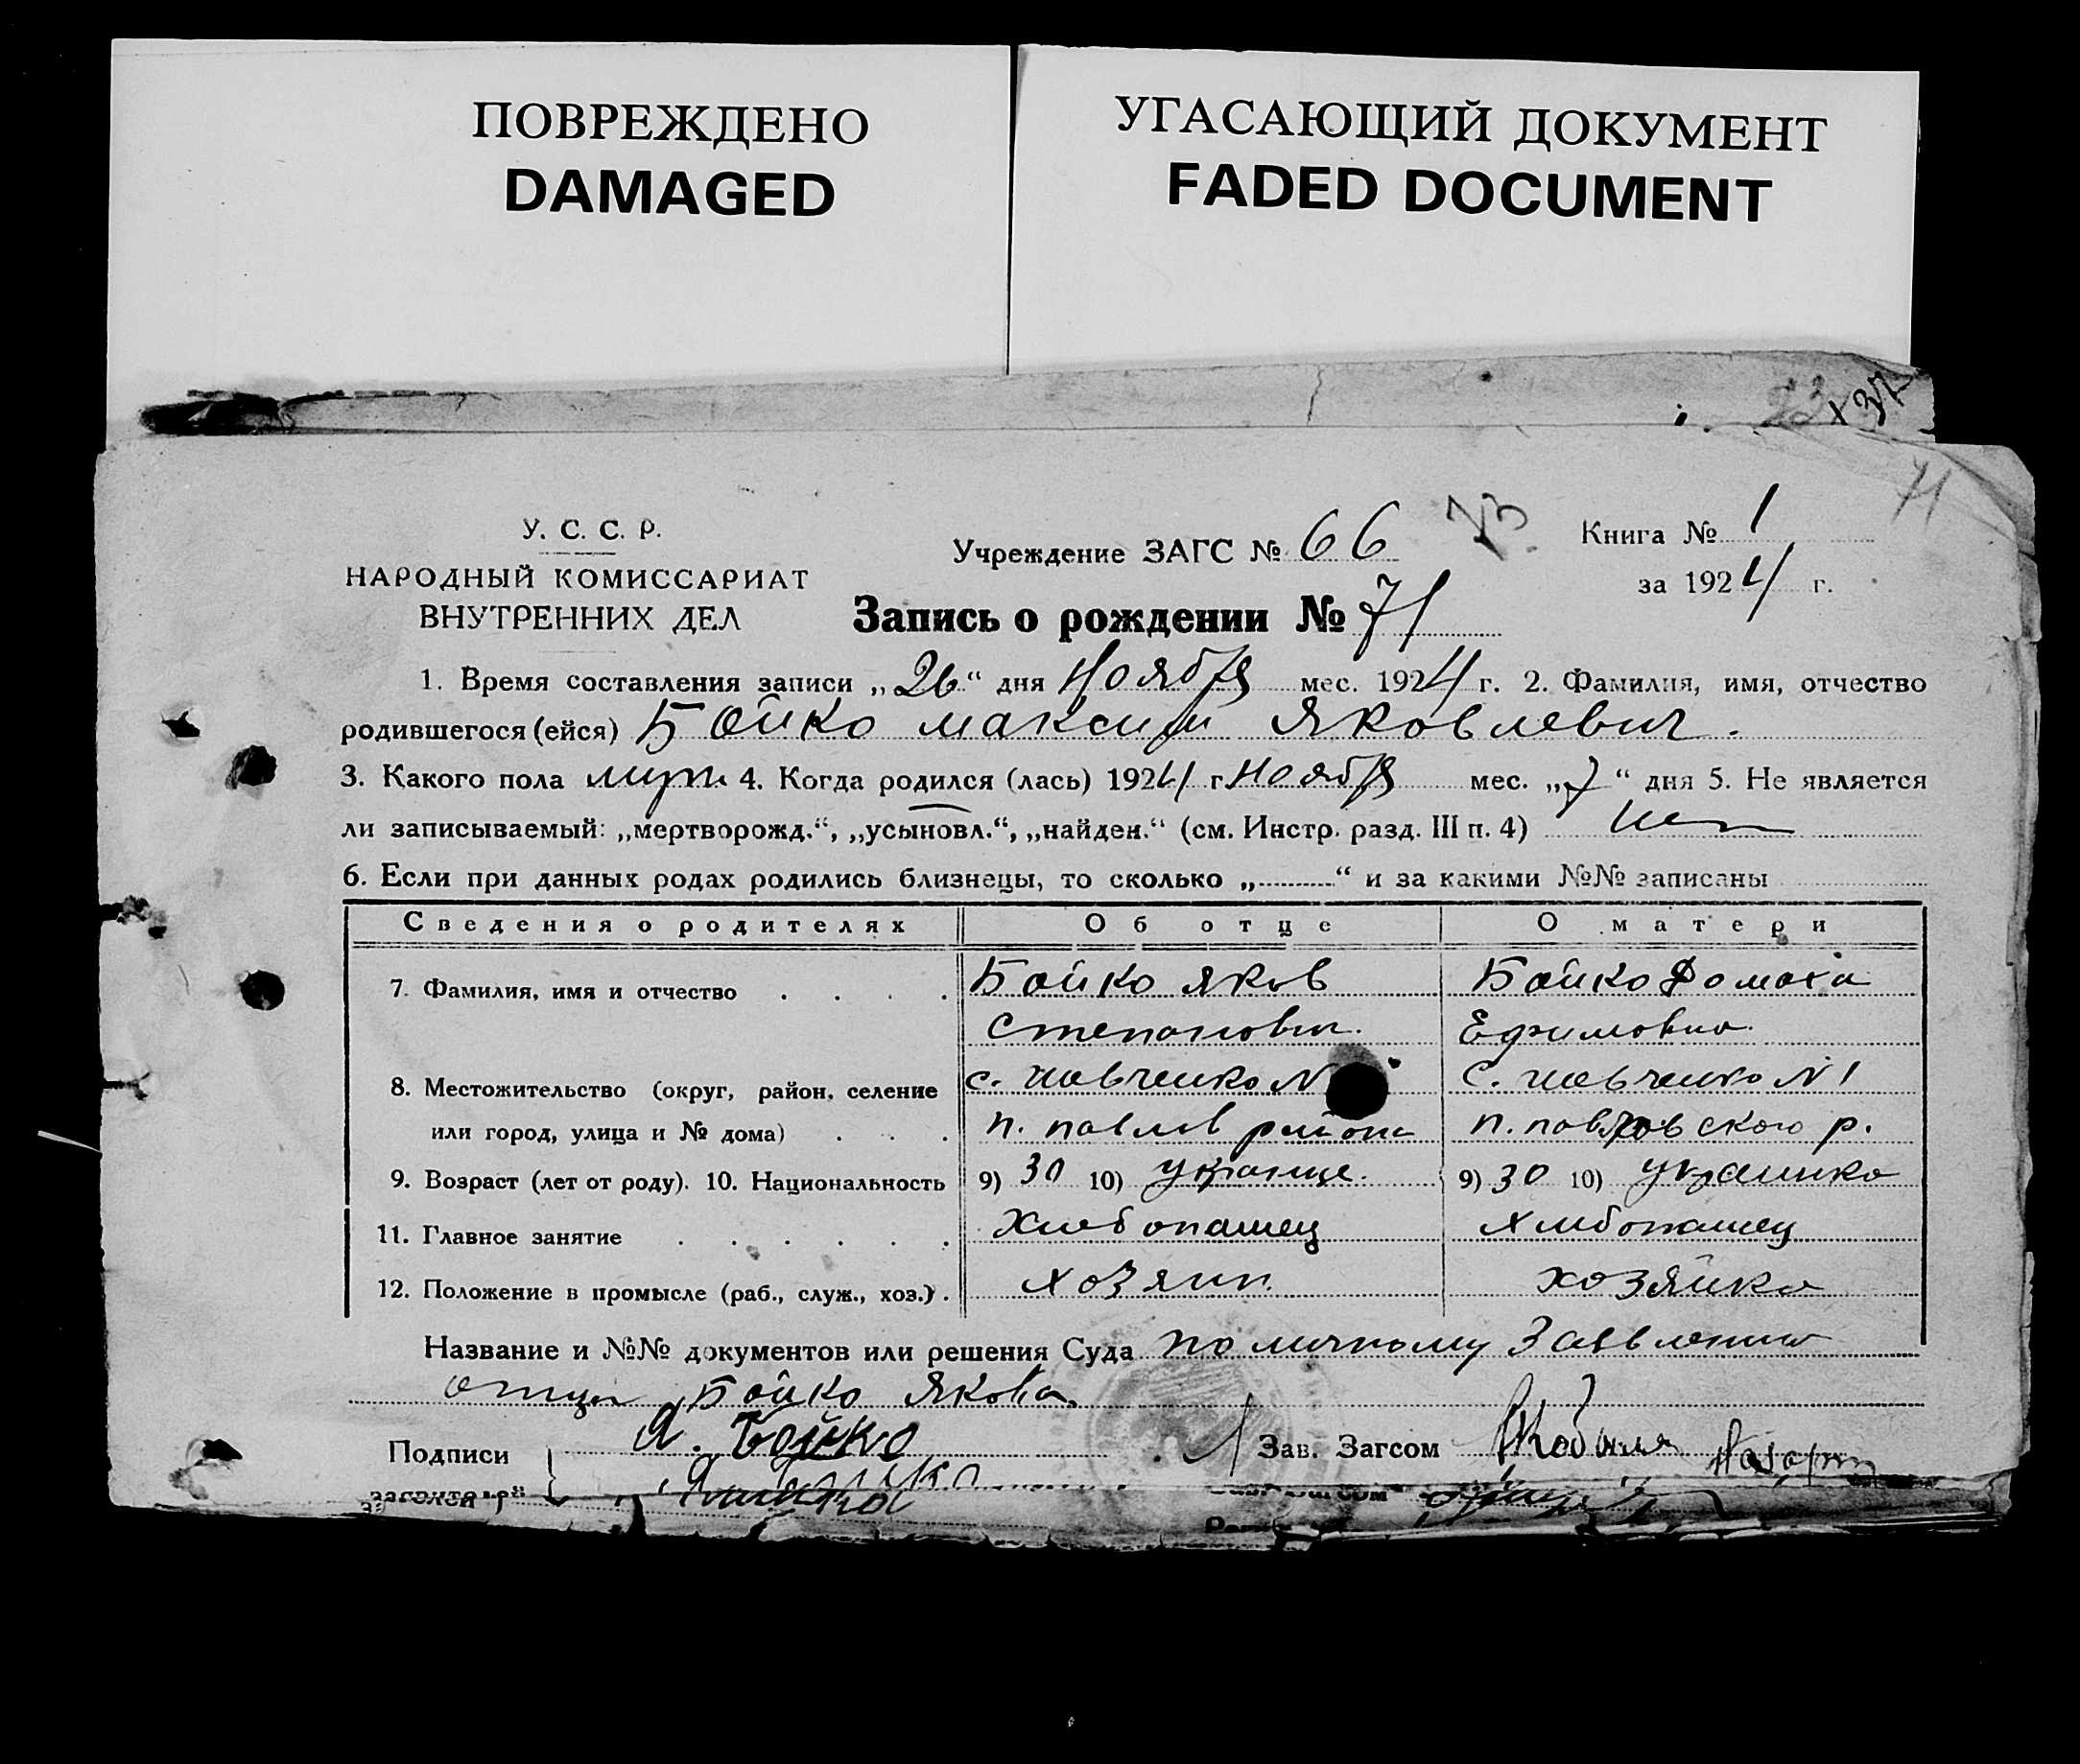 ПОВРЕЖДЕНО
DAMAGED
УГАСАЮЩИЙ ДОКУМЕНТ
FADED DOCUMENT
71
У. С. С. Р.
НАРОДНЫЙ КОМИССАРИАТ
ВНУТРЕННИХ ДЕЛ
Учреждение ЗАГС № 66
Книга № 1
за 1924 г.
Запись о рождении № 71
1. Время составления записи „26“ дня Ноября мес. 1924 г. 2. Фамилия, имя, отчество
родившегося (ейся) Бойко Максим Яковлевич.
3. Какого пола муж. 4. Когда родился (лась) 1924 г. Ноября мес. „7“ дня 5. Не является
ли записываемый: „мертворожд.“, „усыновл.“, „найден.“ (см. Инстр. разд. III п. 4) нет
6. Если при данных родах родились близнецы, то сколько „..........“ и за какими №№ записаны
Сведения о родителях Об отце О матери
7. Фамилия, имя и отчество Бойко Яков Бойко Домаха
Степанович. Ефимовна.
8. Местожительство (округ, район, селение с. Шевченко N с. Шевченко N 1
или город, улица и № дома) п. павлов района п. павловского р.
9. Возраст (лет от роду). 10. Национальность 9) 30 10) украинце. 9) 30 10) украинка
11. Главное занятие Хлебопашец хлебопашец
12. Положение в промысле (раб., служ., хоз.). хозяин. хозяйка
Название и №№ документов или решения Суда по личному Заявлению
отца Бойко Якова.
Подписи Я. Бойко Зав. Загсом